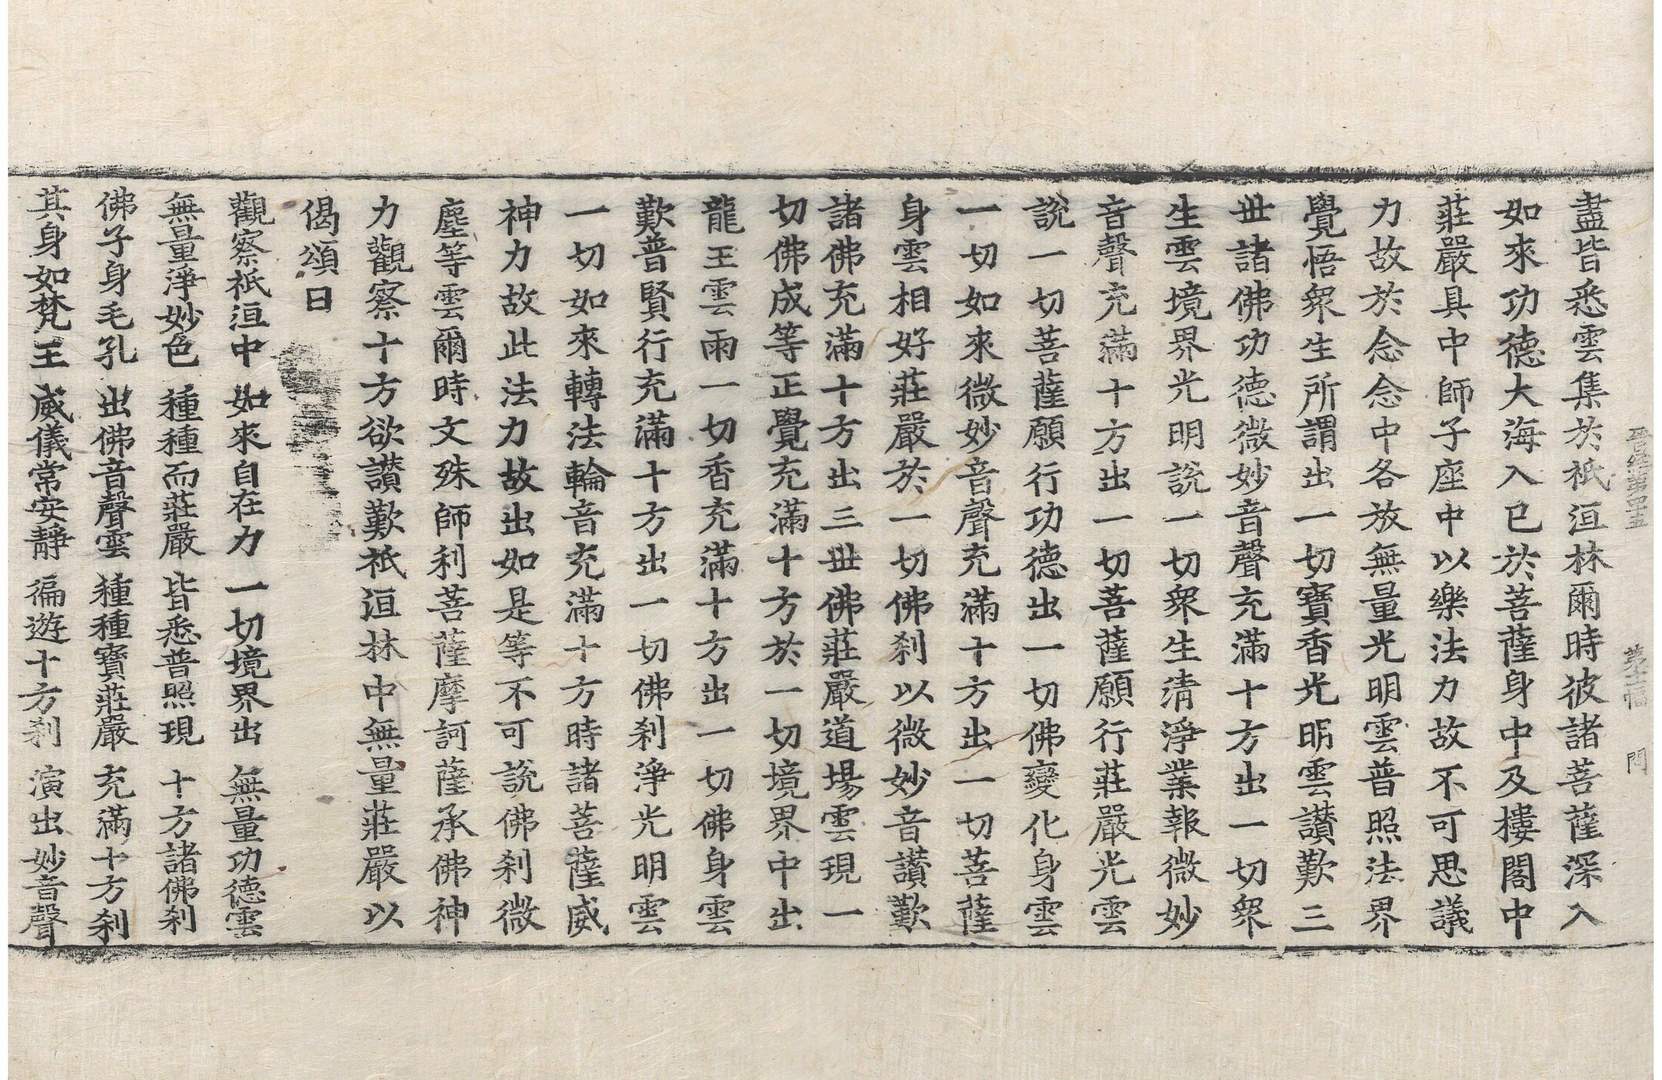 晉經第四十五　第十二幅　門
盡皆悉雲集於祇洹林爾時彼諸菩薩深入
如來功德大海入已於菩薩身中及樓閣中
莊嚴具中師子座中以樂法力故不可思議
力故於念念中各放無量光明雲普照法界
覺悟衆生所謂出一切寶香光明雲讃歎三
世諸佛功德微妙音聲充滿十方出一切衆
生雲境界光明説一切衆生清淨業報微妙
音聲充滿十方出一切菩薩願行莊嚴光雲
説一切菩薩願行功德出一切佛變化身雲
一切如來微妙音聲充滿十方出一切菩薩
身雲相好莊嚴於一切佛刹以微妙音讃歎
諸佛充滿十方出三世佛莊嚴道場雲現一
切佛成等正覺充滿十方於一切境界中出
龍王雲雨一切香充滿十方出一切佛身雲
歎普賢行充滿十方出一切佛刹淨光明雲
一切如來轉法輪音充滿十方時諸菩薩威
神力故此法力故出如是等不可説佛刹微
塵等雲爾時文殊師利菩薩摩訶薩承佛神
力觀察十方欲讃歎祇洹林中無量莊嚴以
偈頌曰
觀察祇洹中　如來自在力　一切境界出　無量功德雲
無量淨妙色　種種而莊嚴　皆悉普照現　十方諸佛刹
佛子身毛孔　出佛音聲雲　種種寶莊嚴　充滿十方刹
其身如梵王　威儀常安靜　徧遊十方刹　演出妙音聲